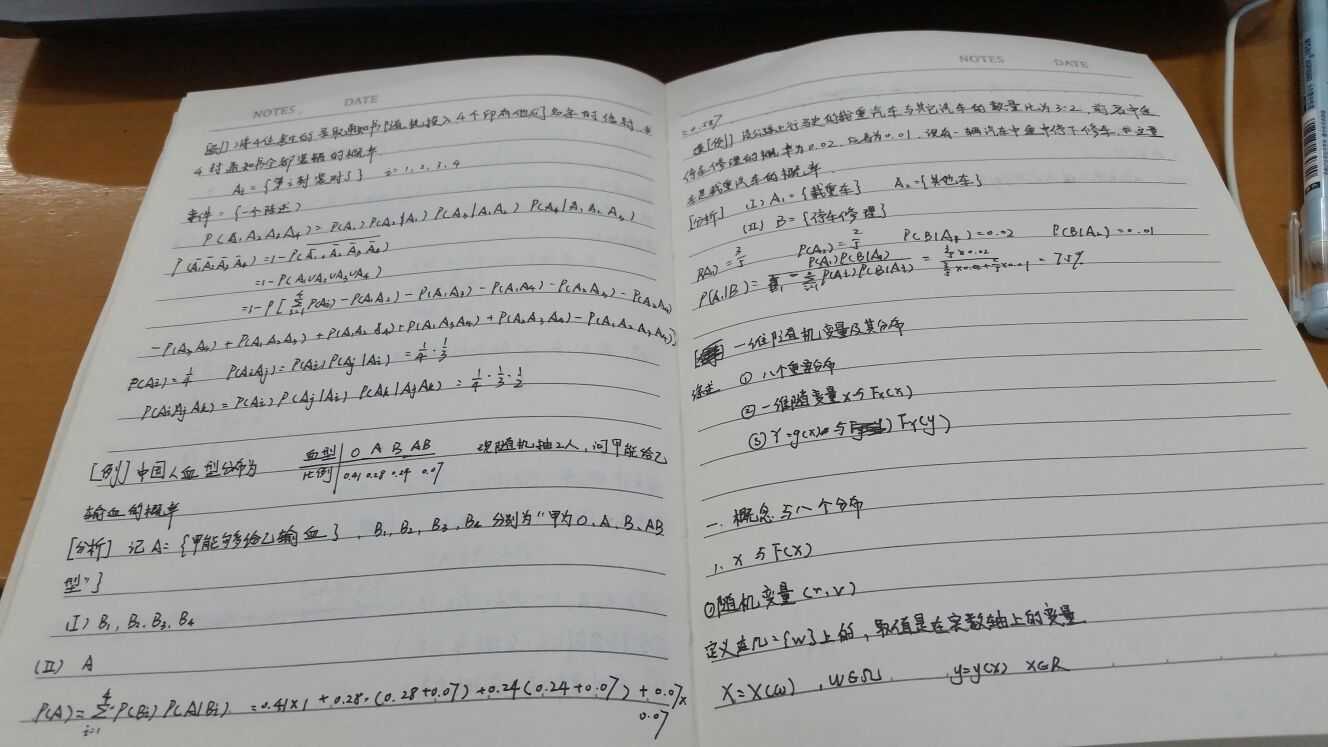 NOTES DATE
[例] 将4位考生的录取通知书随机投入4个印有他们名字的信封,求
4封通知书全部装错的概率
Ai = {第i封装对} i=1,2,3,4
事件 = {一个陈述}
P(A₁A₂A₃A₄) = P(A₁)P(A₂|A₁)P(A₃|A₁A₂)P(A₄|A₁A₂A₃)
=1-P(A₁∪A₂∪A₃∪A₄)
=1-P[ΣP(Ai)-P(A₁A₂)-P(A₁A₃)-P(A₁A₄)-P(A₂A₃)-P(A₂A₄)
-P(A₃A₄)+P(A₁A₂A₃)+P(A₁A₂A₄)+P(A₁A₃A₄)+P(A₂A₃A₄)-P(A₁A₂A₃A₄)]
P(Ai)=1/4 P(AiAj)=P(Ai)P(Aj|Ai)=1/4·1/3
P(AiAjAk)=P(Ai)P(Aj|Ai)P(Ak|AjAk)=1/4·1/3·1/2
[例] 中国人血型分布为 血型 O A B AB 现随机抽2人,问甲能给乙
比例 0.41 0.28 0.24 0.07
输血的概率
[分析] 记A={甲能够给乙输血},B₁、B₂、B₃、B₄分别为"甲为O、A、B、AB
型"}
(I) B₁、B₂、B₃、B₄
(II) A
P(A)=Σ⁴ᵢ₌₁P(Bi)P(A|Bi) =0.41×1+0.28·(0.28+0.07)+0.24(0.24+0.07)+0.07×
0.07
NOTES DATE
=0.587
[例] 设公路上行驶的载重汽车与其它汽车的数量比为3:2,前者中途
停车修理的概率为0.02,后者为0.01,现有一辆汽车中途停下修车,求这辆
车是载重汽车的概率
[分析] (I) A₁={载重车} A₂={其他车}
(II) B={停车修理}
P(A₁)=3/5 P(A₂)=2/5 P(B|A₁)=0.02 P(B|A₂)=0.01
=75%
一维随机变量及其分布
综述 ① 八个重要分布
② 一维随变量X与Fx(x)
③ Y=g(x) 与 FY(y)
一. 概念与八个分布
1. X与F(x)
①随机变量(r,v)
定义在Ω={w}上的,取值是在实数轴上的变量
X=X(ω),ω∈Ω y=y(x) x∈R